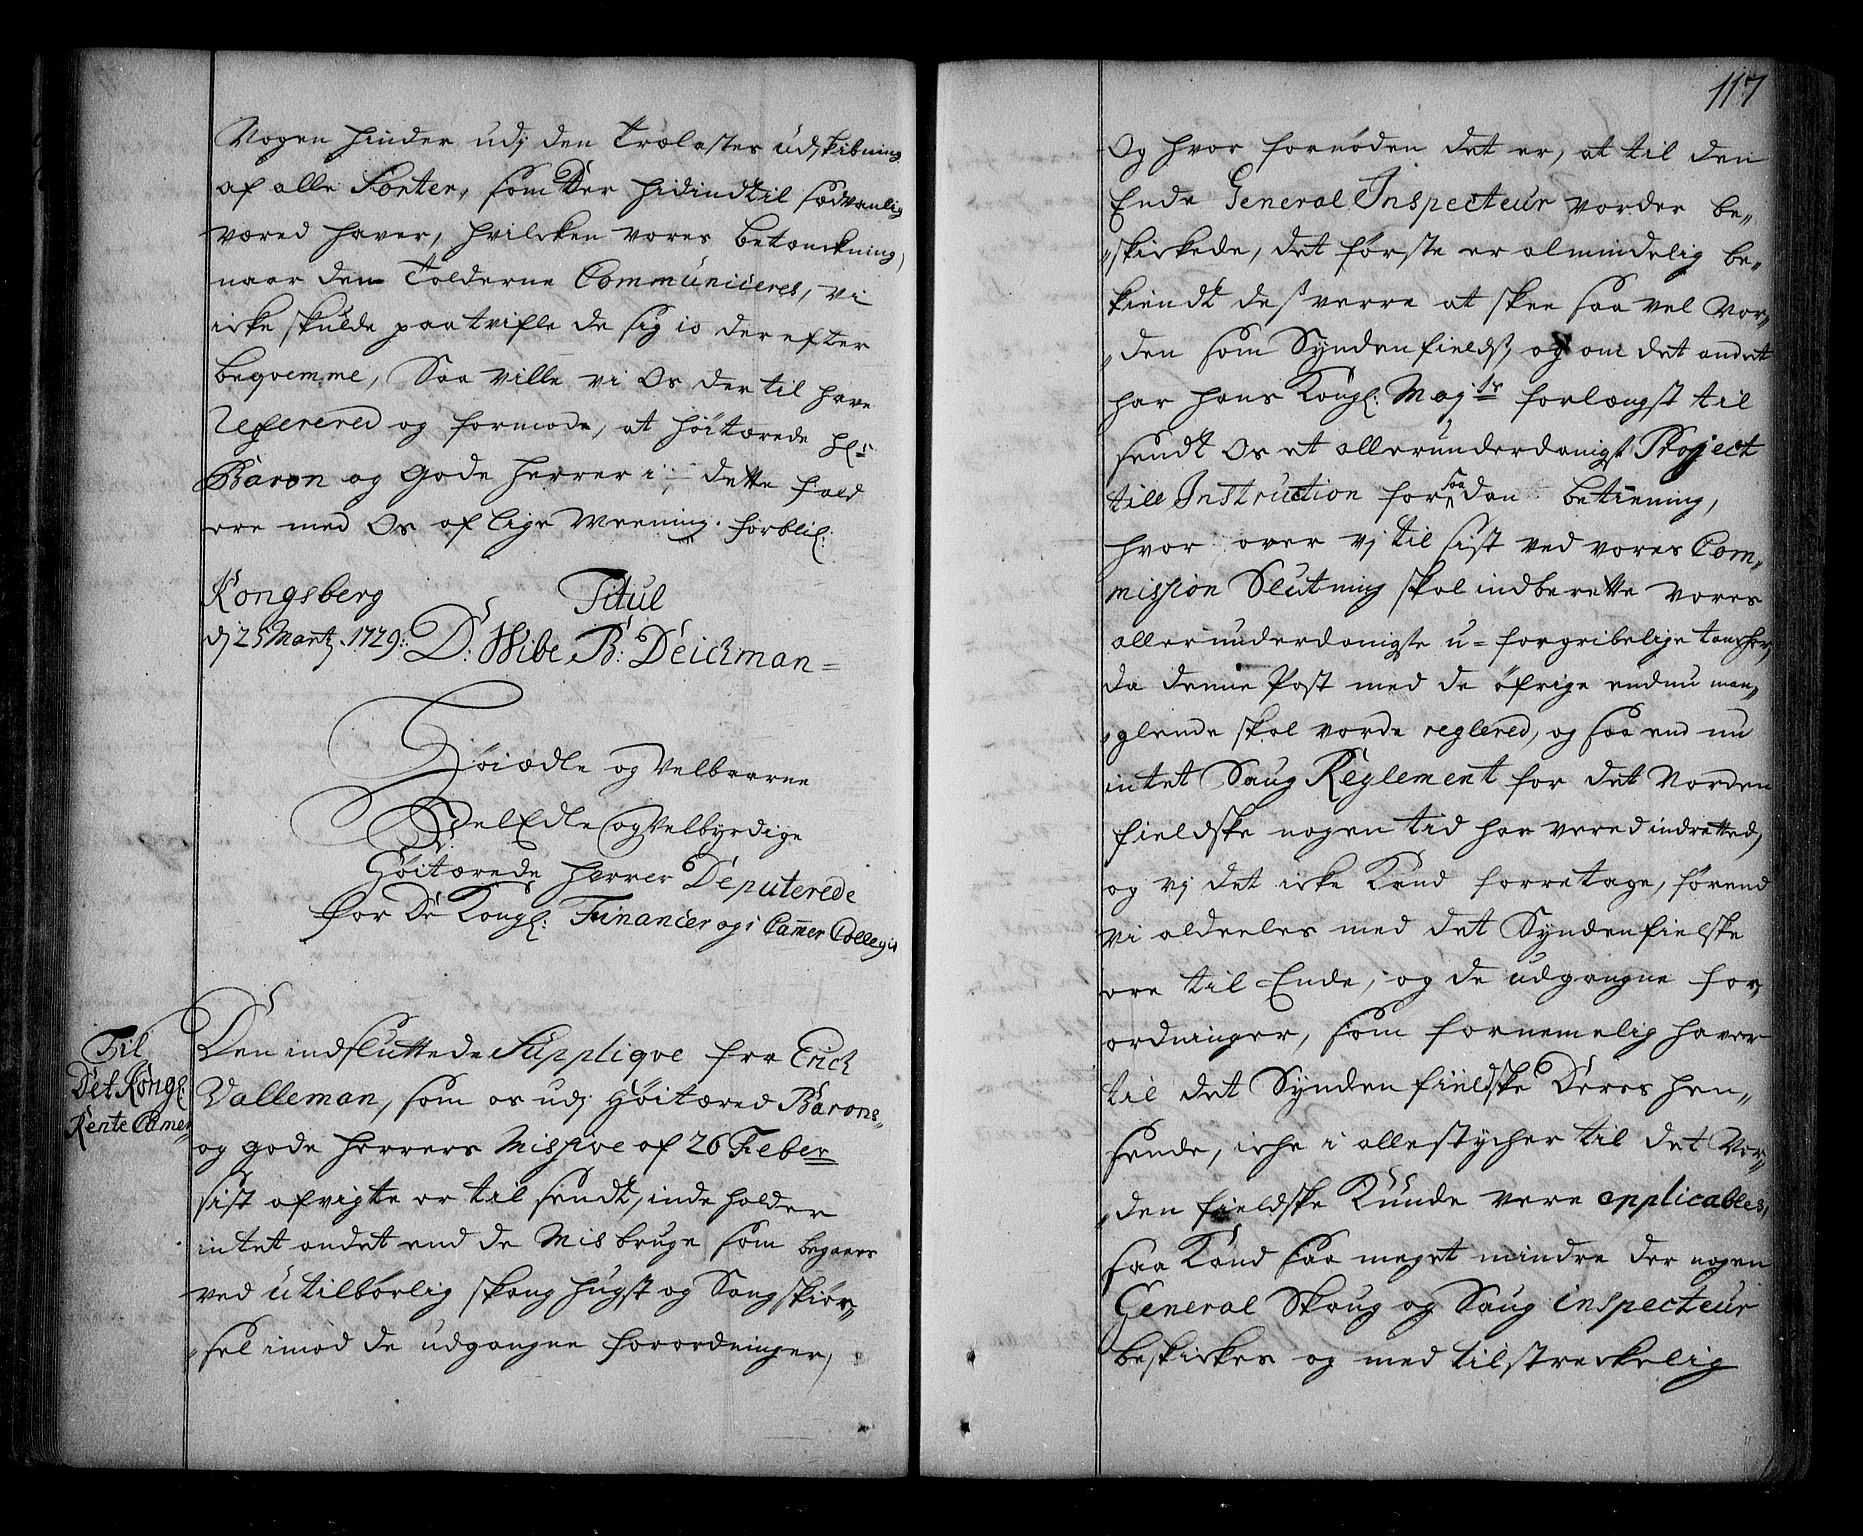 Nogen hinder udj den Trælastes udskibning
af alle Sorter, som der hidindtil sædvanlig
væred haver, hvilcken vores betænckning,
naar den Tolderne Communiceres, vi
icke skulde paatvifle de sig io der efter
beqvemme, Saa ville vi os der til have
Referered og formode, at høitærede Hr
Baron og gode herrer i dette fald
ere med os af lige Meening. forblif:
Kongsberg
Titul
dj 25 Martj 1729: D: Wibe B: Deichman=
Høiædle og Velbaarne
VelEdle og Velbyrdige
Høitærede herrer Deputerede
for De Kongl: Financier og i Camer Collegio
Til
Det Kongl:
Rente Camer
Den indsluttede Supplique fra Erich
Valleman, som os udj Høitæred Barons
og gode herrers Missive af 26 Feber
sist afvigte er til sendt, inde holder
intet andet end de Misbruge som begaaes
ved utilbørlig skoug hugst og Saug skiør-
„sel imod de udgangne forordninger,
117
Og hvor fornøden det er, at til den
Ende General Inspecteur vorder be„
„skickede, det første er almindelig be„
kiendt des verre at skee saa vel Nor„
„den som Syndenfields, og om det andet
har hans Kongl: Mayts forlængst til
sendt os et allerunderdanigst Project
till Instruction for saadan betiening,
hvor over vj til sist ved vores Com„
mission Slutning skal indberette vores
allerunderdanigste u=forgribelige tancher,
da denne Post med de øfrige endnu man„
„glende skal vorde reglered, og saa end nu
intet Saug Reglement for det Norden
fieldske nogen tid har vered indretted,
og vj det icke Kand forretage, førend
vi aldeeles med det Syndenfielske
ere til Ende, og de udgangne for„
ordninger, som fornemelig haver
til det Synden fieldske Deres hen„
seende, iche i alle stycher til det Nor„
„den fieldske Kunde vere applicables,
saa Kand saa meget mindre der nogen
General Skoug og Saug inspecteur
beskickes og med tilstreckelig